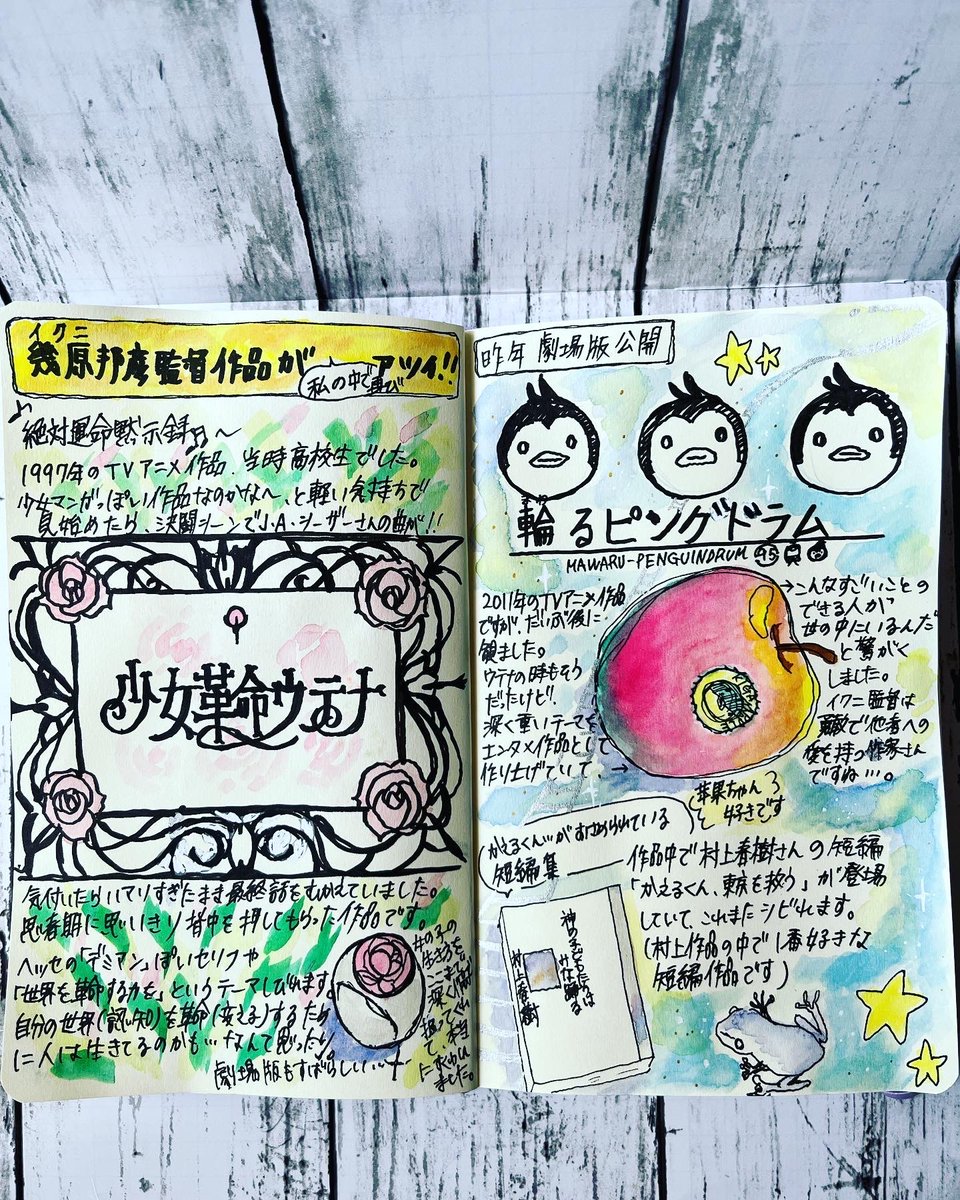 イクニ
幾原邦彦監督作品が
私の中で再び
アツイ!!
絶対運命黙示録〜
1997年のTVアニメ作品、当時高校生でした。
少女マンガっぽい作品なのかな〜、と軽い気持ちで
見始めたら、決闘シーンでJ.A.シーザーさんの曲が!!
少女革命ウテナ
気付いたらハマりすぎたまま最終話をむかえていました。
思春期に思いきり背中を押してもらった作品です。
ヘッセの「デミアン」ぽいセリフや
「世界を革命する力を」というテーマしびれます。
自分の世界(認知)を革命(変える)するため
に人は生きてるのかも…なんて思ったり。
劇場版もすばらしい…
女の子の
生き方を
昨年 劇場版公開
まわ
輪るピングドラム
MAWARU-PENGUINDRUM 95
2011年のTVアニメ作品
ですが、だいぶ後に
観ました。
ウテナの時もそう
だったけど、
深く重いテーマを
エンタメ作品として
作り上げていて、→
→こんなすごいことの
できる人が
世の中にいるんだ
と驚がく
しました。
イクニ監督は
素敵で他者への
愛を持つ作家さん
ですね…。
苹果ちゃん
好きです
かえるくん…がおさめられている
短編集
神の子どもたちは
みな踊る
村上春樹
作品中で村上春樹さんの短編
「かえるくん、東京を救う」が登場
していて、これまたシビれます。
(村上作品の中で1番好きな
短編作品です)